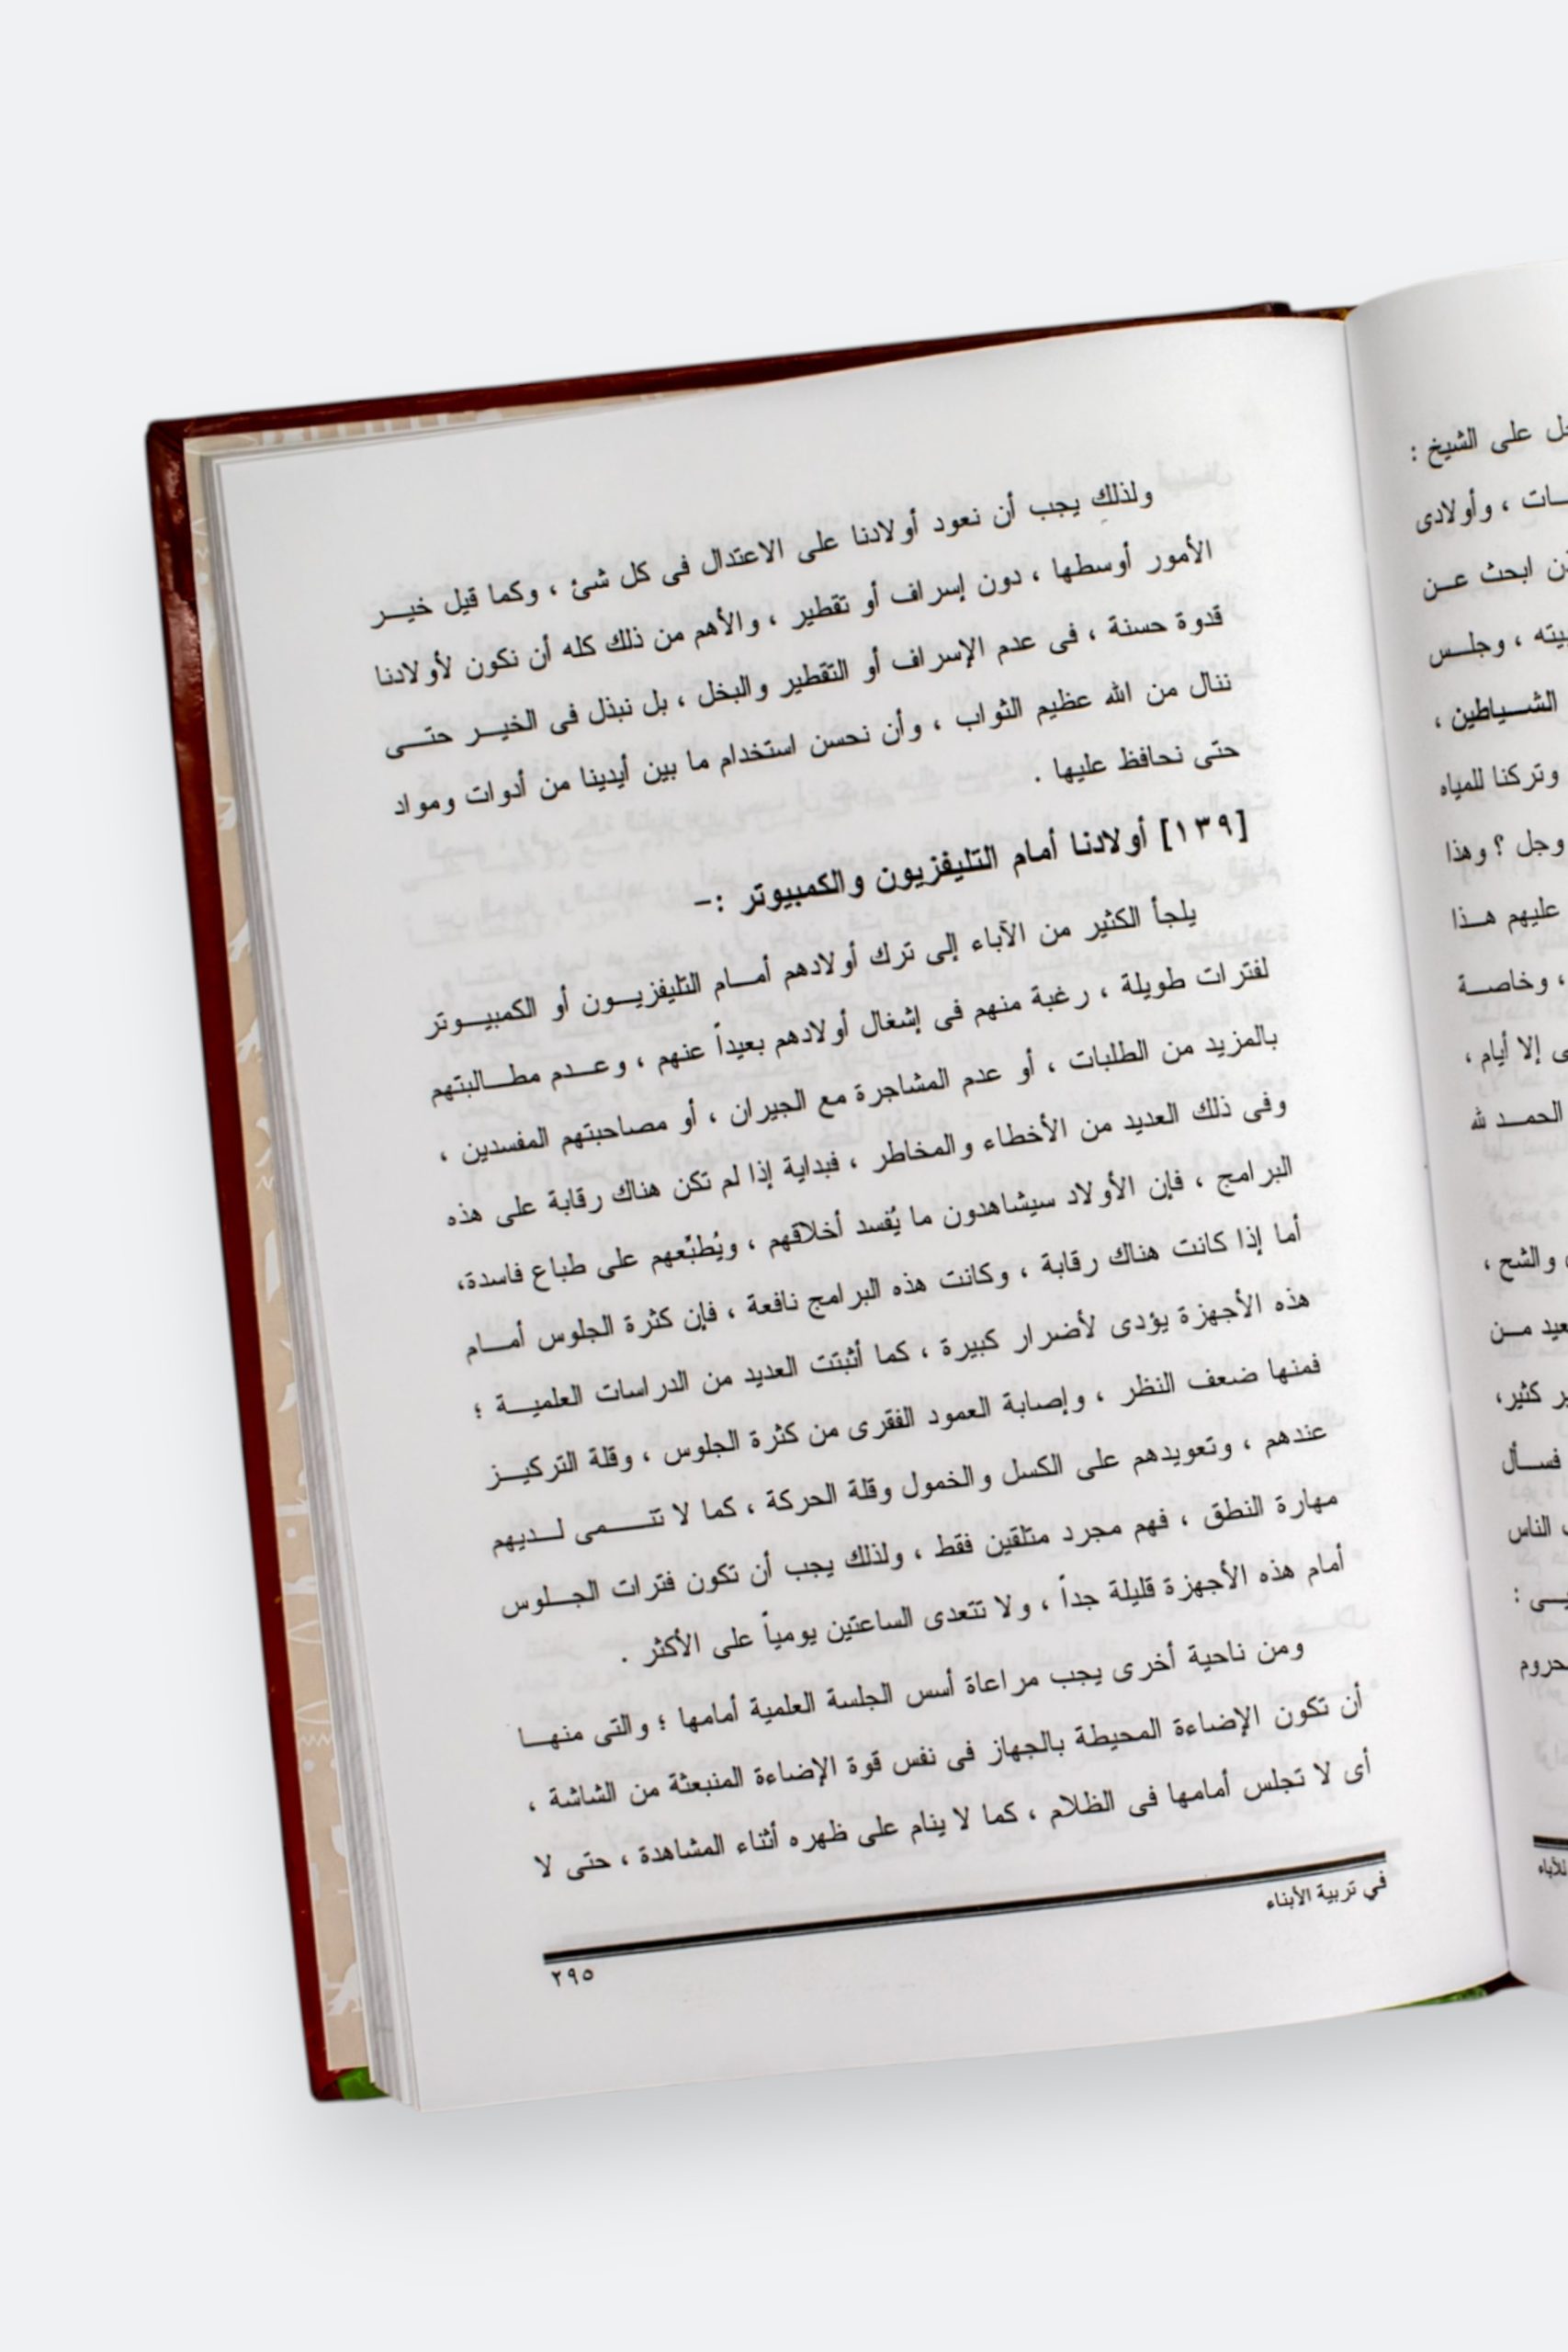 ولذلك يجب أن نعود أولادنا على الاعتدال فى كل شئ ، وكما قيل خير
الأمور أوسطها ، دون إسراف أو تقطير ، والأهم من ذلك كله أن نكون لأولادنا
قدوة حسنة ، فى عدم الإسراف أو التقطير والبخل ، بل نبذل فى الخير حتى
ننال من الله عظيم الثواب ، وأن نحسن استخدام ما بين أيدينا من أدوات ومواد
حتى نحافظ عليها .
[١٣٩] أولادنا أمام التليفزيون والكمبيوتر :-
يلجأ الكثير من الآباء إلى ترك أولادهم أمام التليفزيون أو الكمبيوتر
لفترات طويلة ، رغبة منهم فى إشغال أولادهم بعيداً عنهم ، وعدم مطالبتهم
بالمزيد من الطلبات ، أو عدم المشاجرة مع الجيران ، أو مصاحبتهم المفسدين ،
وفى ذلك العديد من الأخطاء والمخاطر ، فبداية إذا لم تكن هناك رقابة على هذه
البرامج ، فإن الأولاد سيشاهدون ما يُفسد أخلاقهم ، ويُطبِّعهم على طباع فاسدة،
أما إذا كانت هناك رقابة ، وكانت هذه البرامج نافعة ، فإن كثرة الجلوس أمام
هذه الأجهزة يؤدى لأضرار كبيرة ، كما أثبتت العديد من الدراسات العلمية ؛
فمنها ضعف النظر ، وإصابة العمود الفقرى من كثرة الجلوس ، وقلة التركيز
عندهم ، وتعويدهم على الكسل والخمول وقلة الحركة ، كما لا تتمى لديهم
مهارة النطق ، فهم مجرد متلقين فقط ، ولذلك يجب أن تكون فترات الجلوس
أمام هذه الأجهزة قليلة جداً ، ولا تتعدى الساعتين يومياً على الأكثر .
ومن ناحية أخرى يجب مراعاة أسس الجلسة العلمية أمامها ؛ والتى منها
أن تكون الإضاءة المحيطة بالجهاز فى نفس قوة الإضاءة المنبعثة من الشاشة ،
أى لا تجلس أمامها فى الظلام ، كما لا ينام على ظهره أثناء المشاهدة ، حتى لا
في تربية الأبناء
٢٩٥
على الشيخ :
، وأولادى
ابحث عن
، وجلس
الشياطين ،
وتركنا للمياه
وجل ؟ وهذا
عليهم هذا
، وخاصة
إلا أيام ،
الحمد لله
والشح ،
من
كثير،
فسأل
الناس